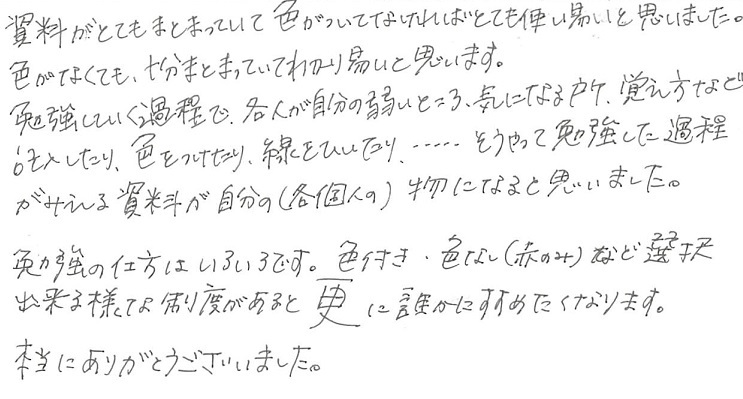 資料がとてもまとまっていて色がついてなければとても使い易いと思いました。
色がなくても、十分まとまっていてわかり易いと思います。
勉強していく過程で、各人が自分の弱いところ、気になる所、覚え方など
記入したり、色をつけたり、線をひいたり、……そうやって勉強した過程
がみえる資料が自分の(各個人の)物になると思いました。
勉強の仕方はいろいろです。色付き・色なし(赤のみ)など選択
出来る様な制度があると更に誰かにすすめたくなります。
本当にありがとうございいました。